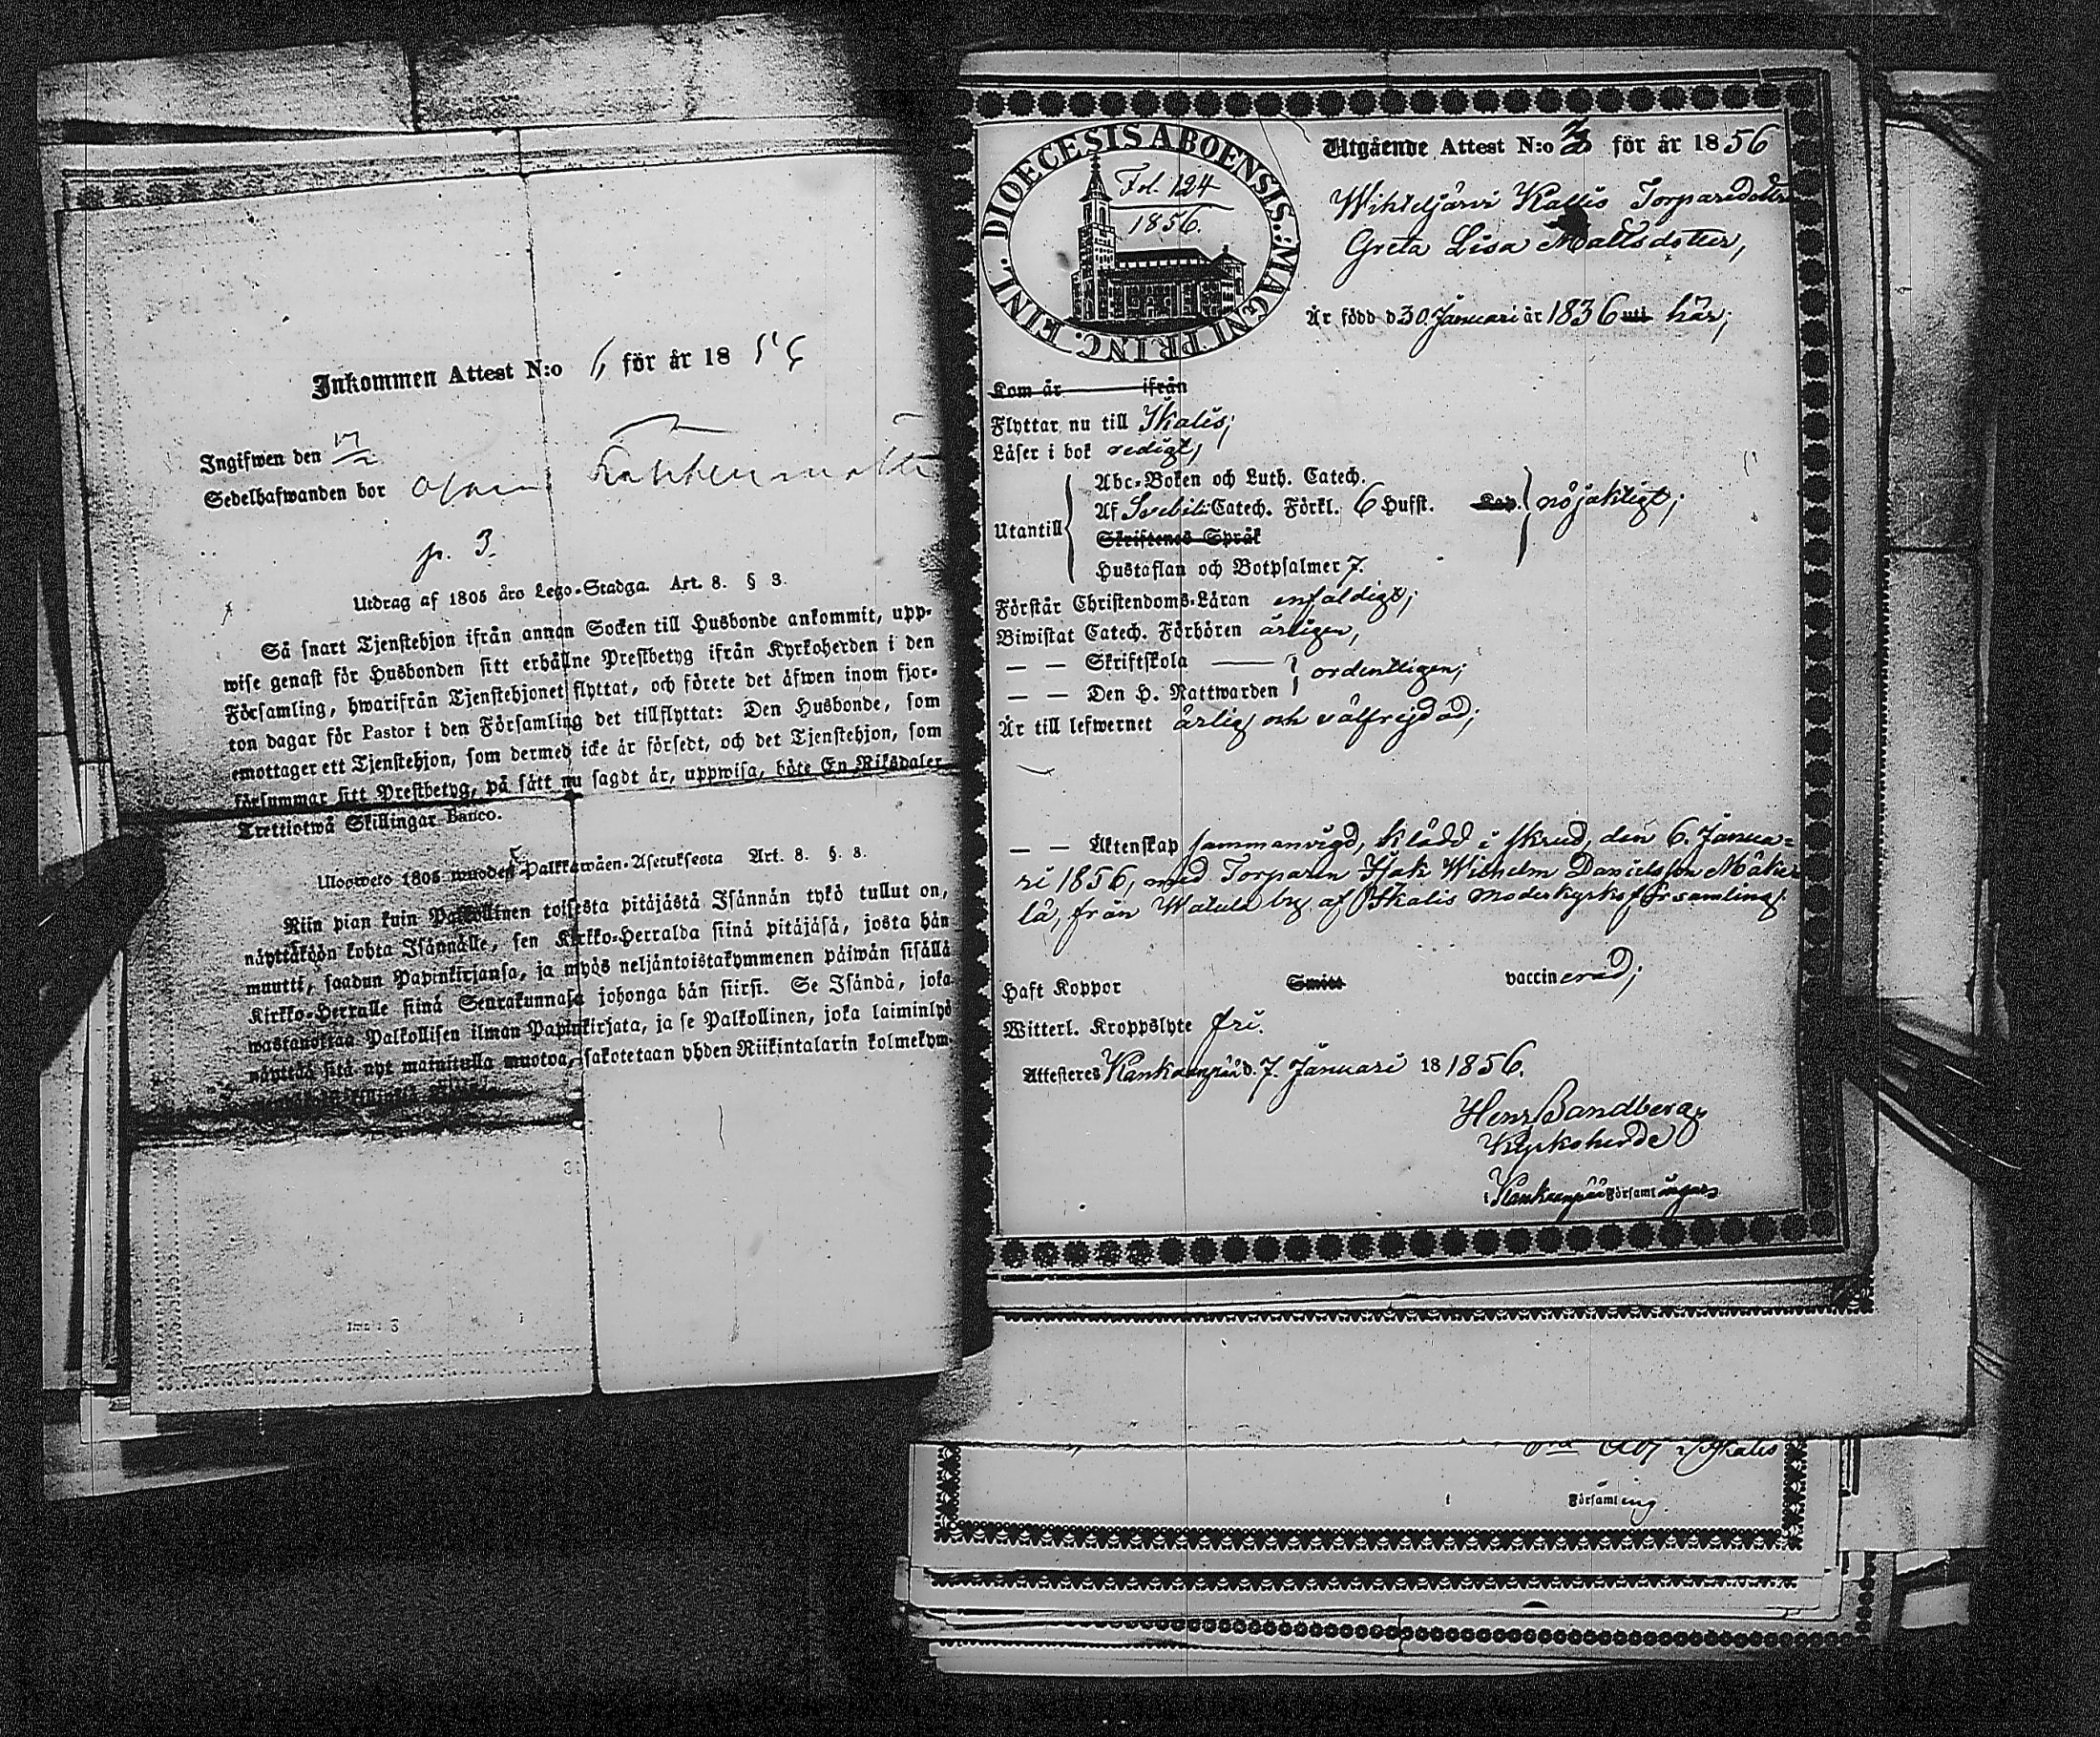 Inkommen Attest N:o 6, för år 18 56
Ingifwen den 17/2
Sedelhafwanden bor
p. 3.
Utdrag af 1805 års Lego-Stadga. Art. 8. § 3.
Så snart Tjenstehjon ifrån annan Socken till Husbonde ankommit, upp-
wise genast för Husbonden sitt erhållne Prestbetyg ifrån Kyrkoherden i den
Församling, hwarifrån Tjenstehjonet flyttat, och förete det äfwen inom fjor-
ton dagar för Pastor i den Församling det tillflyttat: Den Husbonde, som
emottager ett Tjenstehjon, som dermed icke är försedt, och det Tjenstehjon, som
försummar sitt Prestbetyg, på sätt nu sagdt är, uppwisa, böte En Riksdaler
Trettiotwå Skillingar Banco.
Ulosweto 1805 wuoden Palkkawäen-Asetuksesta Art. 8. §. 3.
Niin pian kuin Palkollinen toisesta pitäjästä Isännän tykö tullut on,
näyttäköön kohta Isännälle, sen Kirkko-Herralda siinä pitäjäsä, josta hän
muutti, saadun Papinkirjansa, ja myös neljäntoistakymmenen päiwän sisällä
Kirkko-Herralle siinä Seurakunnasa johonga hän siirsi. Se Isändä, joka
wastanottaa Palkollisen ilman Papinkirjata, ja se Palkollinen, joka laiminlyö
näyttää sitä nyt mainitulla muotoa, sakotetaan yhden Riikintalarin kolmekym-
DIOECESIS ABOENSIS. MAGNI PRINC. FINL.
Fol. 124
1856.
Utgående Attest N:o 3 för år 1856
Wihteljärvi Kallis Torparedotter
Greta Lisa Mattsdotter,
Är född d 30 Januari år 1836 uti här;
Kom år ifrån
Flyttar nu till Ikalis;
Läser i bok redigt,
Abc-Boken och Luth. Catech.
Utantill Af Svebili Catech. Förkl. 6 Hufst. Kap. nöjaktigt;
Skriftenes Språk
Hustaflan och Botpsalmer 7.
Förstår Christendoms-Läran enfaldigt;
Biwistat Catech. Förhören årligen,
— — Skriftskola
— — Den H. Nattwarden ordentligen;
Är till lefwernet ärlig och välfrejdad;
— — Äktenskap sammanvigd, klädd i skrud, den 6. Janua=
ri 1856, med Torparen Isak Wilhelm Danielsson Mäkie
lä, från Watula by af Ikalis moderkyrkoförsamling.
Haft Koppor Smitt vaccinerad;
Witterl. Kroppslyte fri.
Attesteres Kankaanpää d. 7. Januari 18 1856.
Henr Sandberg
Kyrkoherde
i Kankaanpää Församlingar.
Ikalis
i Församling.